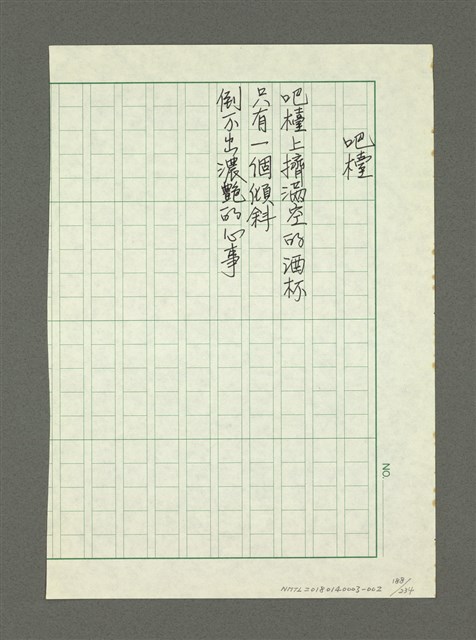 吧檯
吧檯上擠滿空的酒杯
只有一個傾斜
倒不出濃艷的心事
NO.
188/284
NMTL20180140003-002